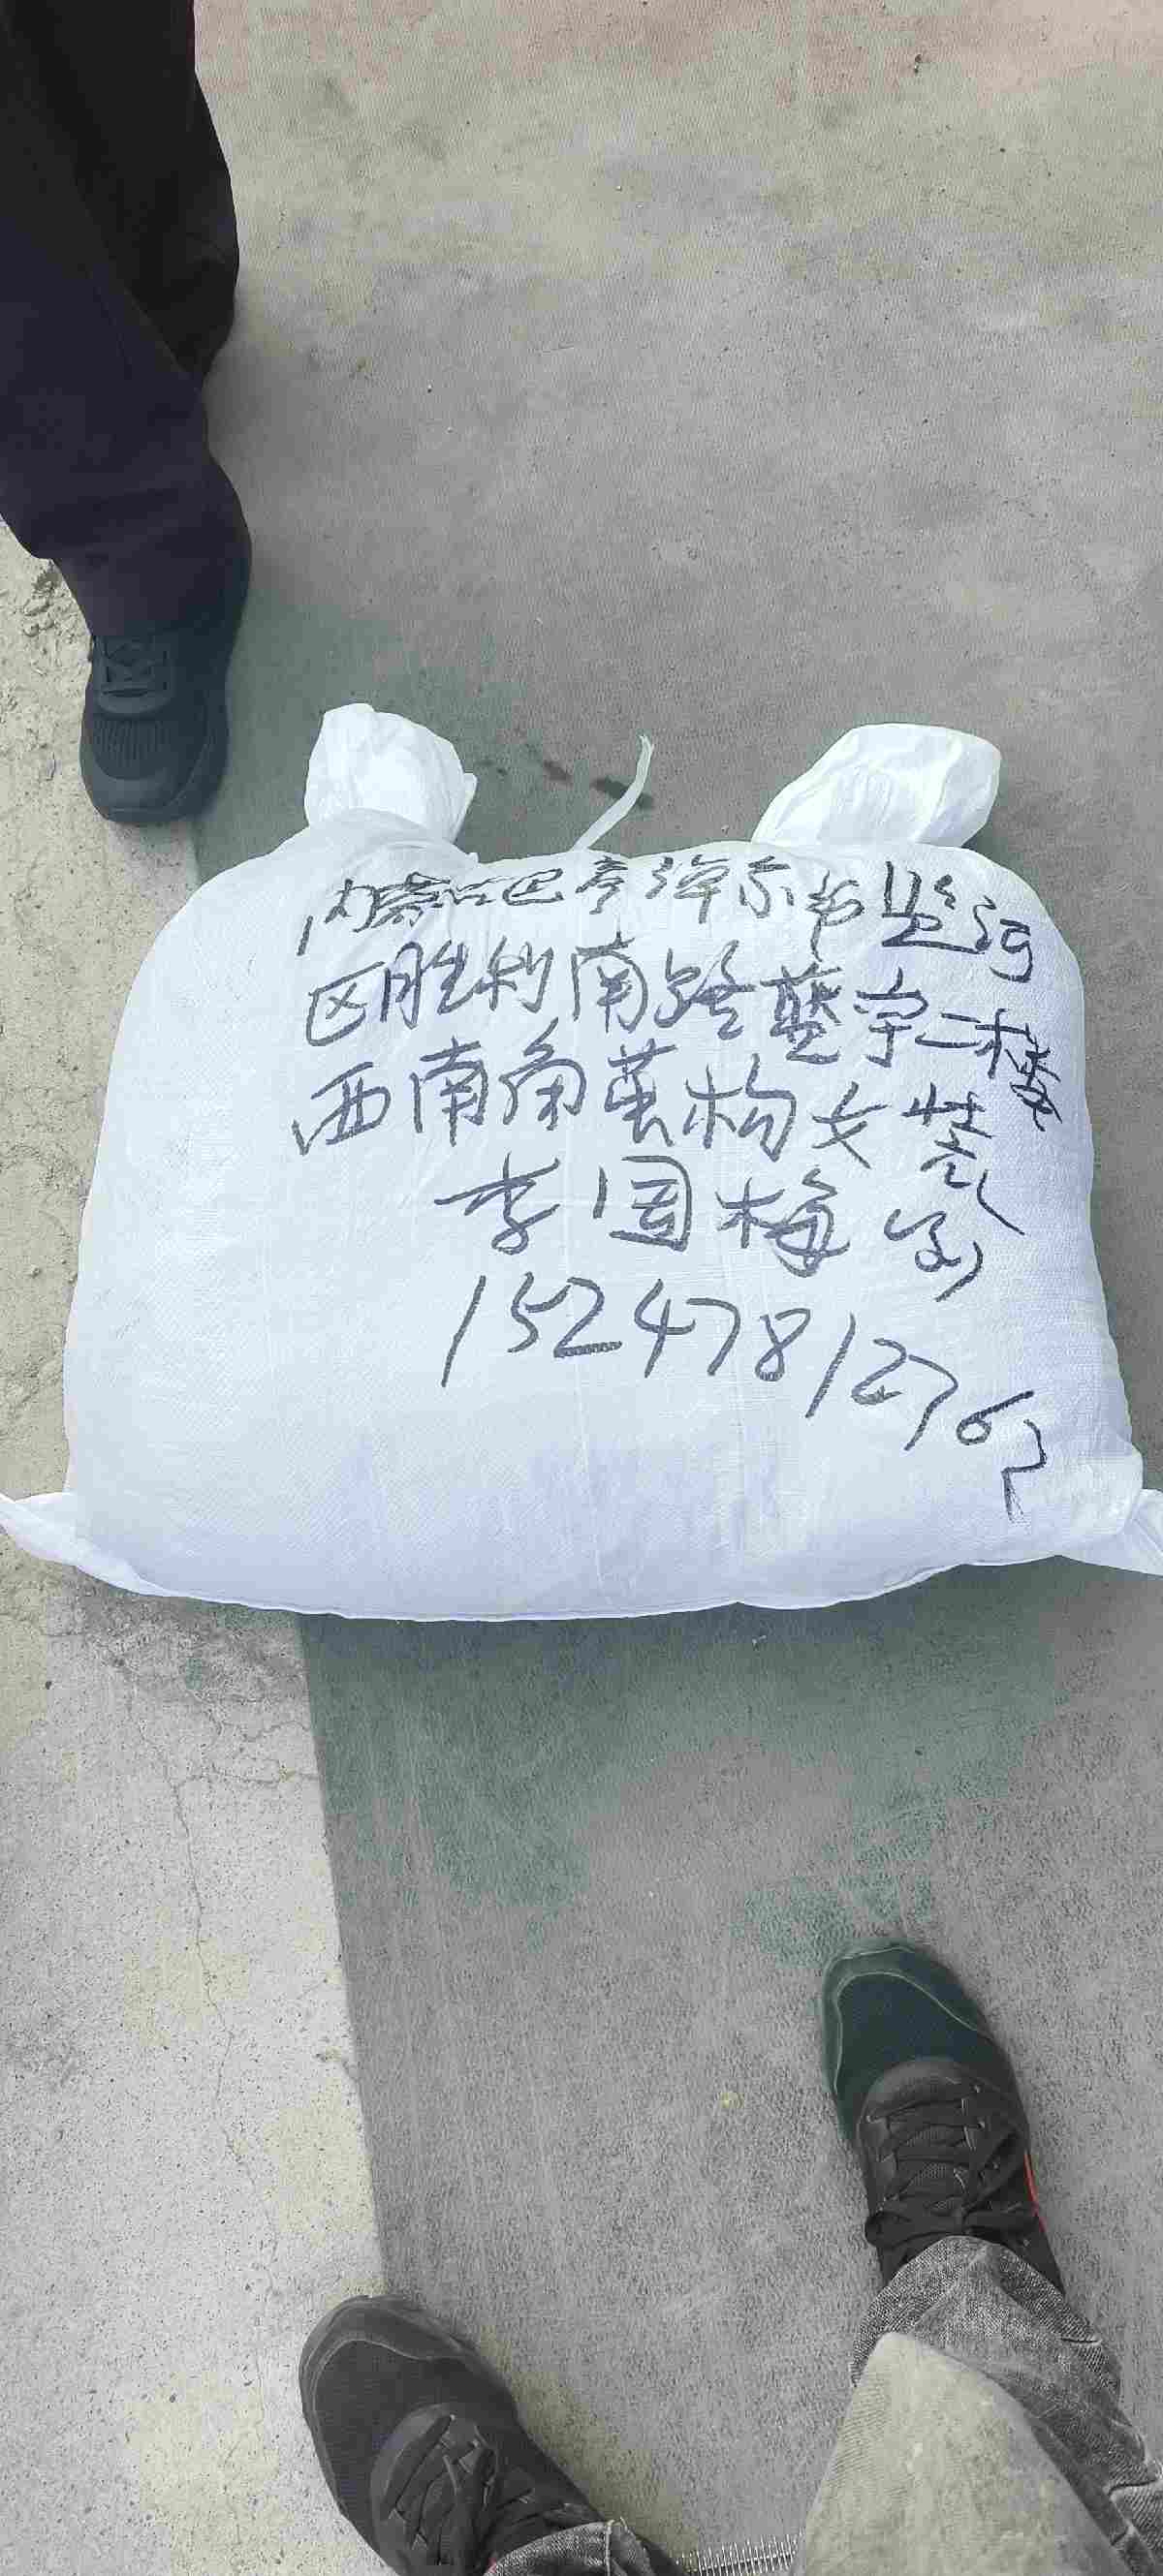 内蒙古巴彦淖尔市临河
区胜利南路蓝宇二楼
西南角茧构女装
李国梅(收)
15247812762